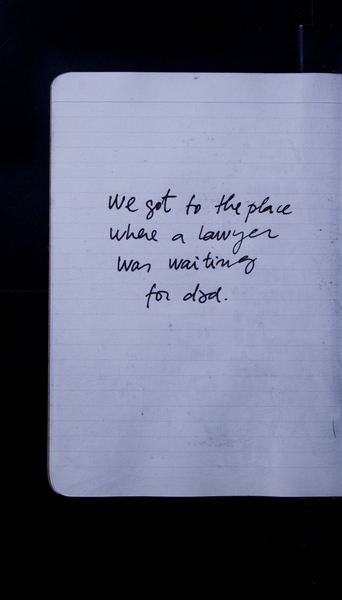 We got to the place
where a lawyer
was waiting
for dad.